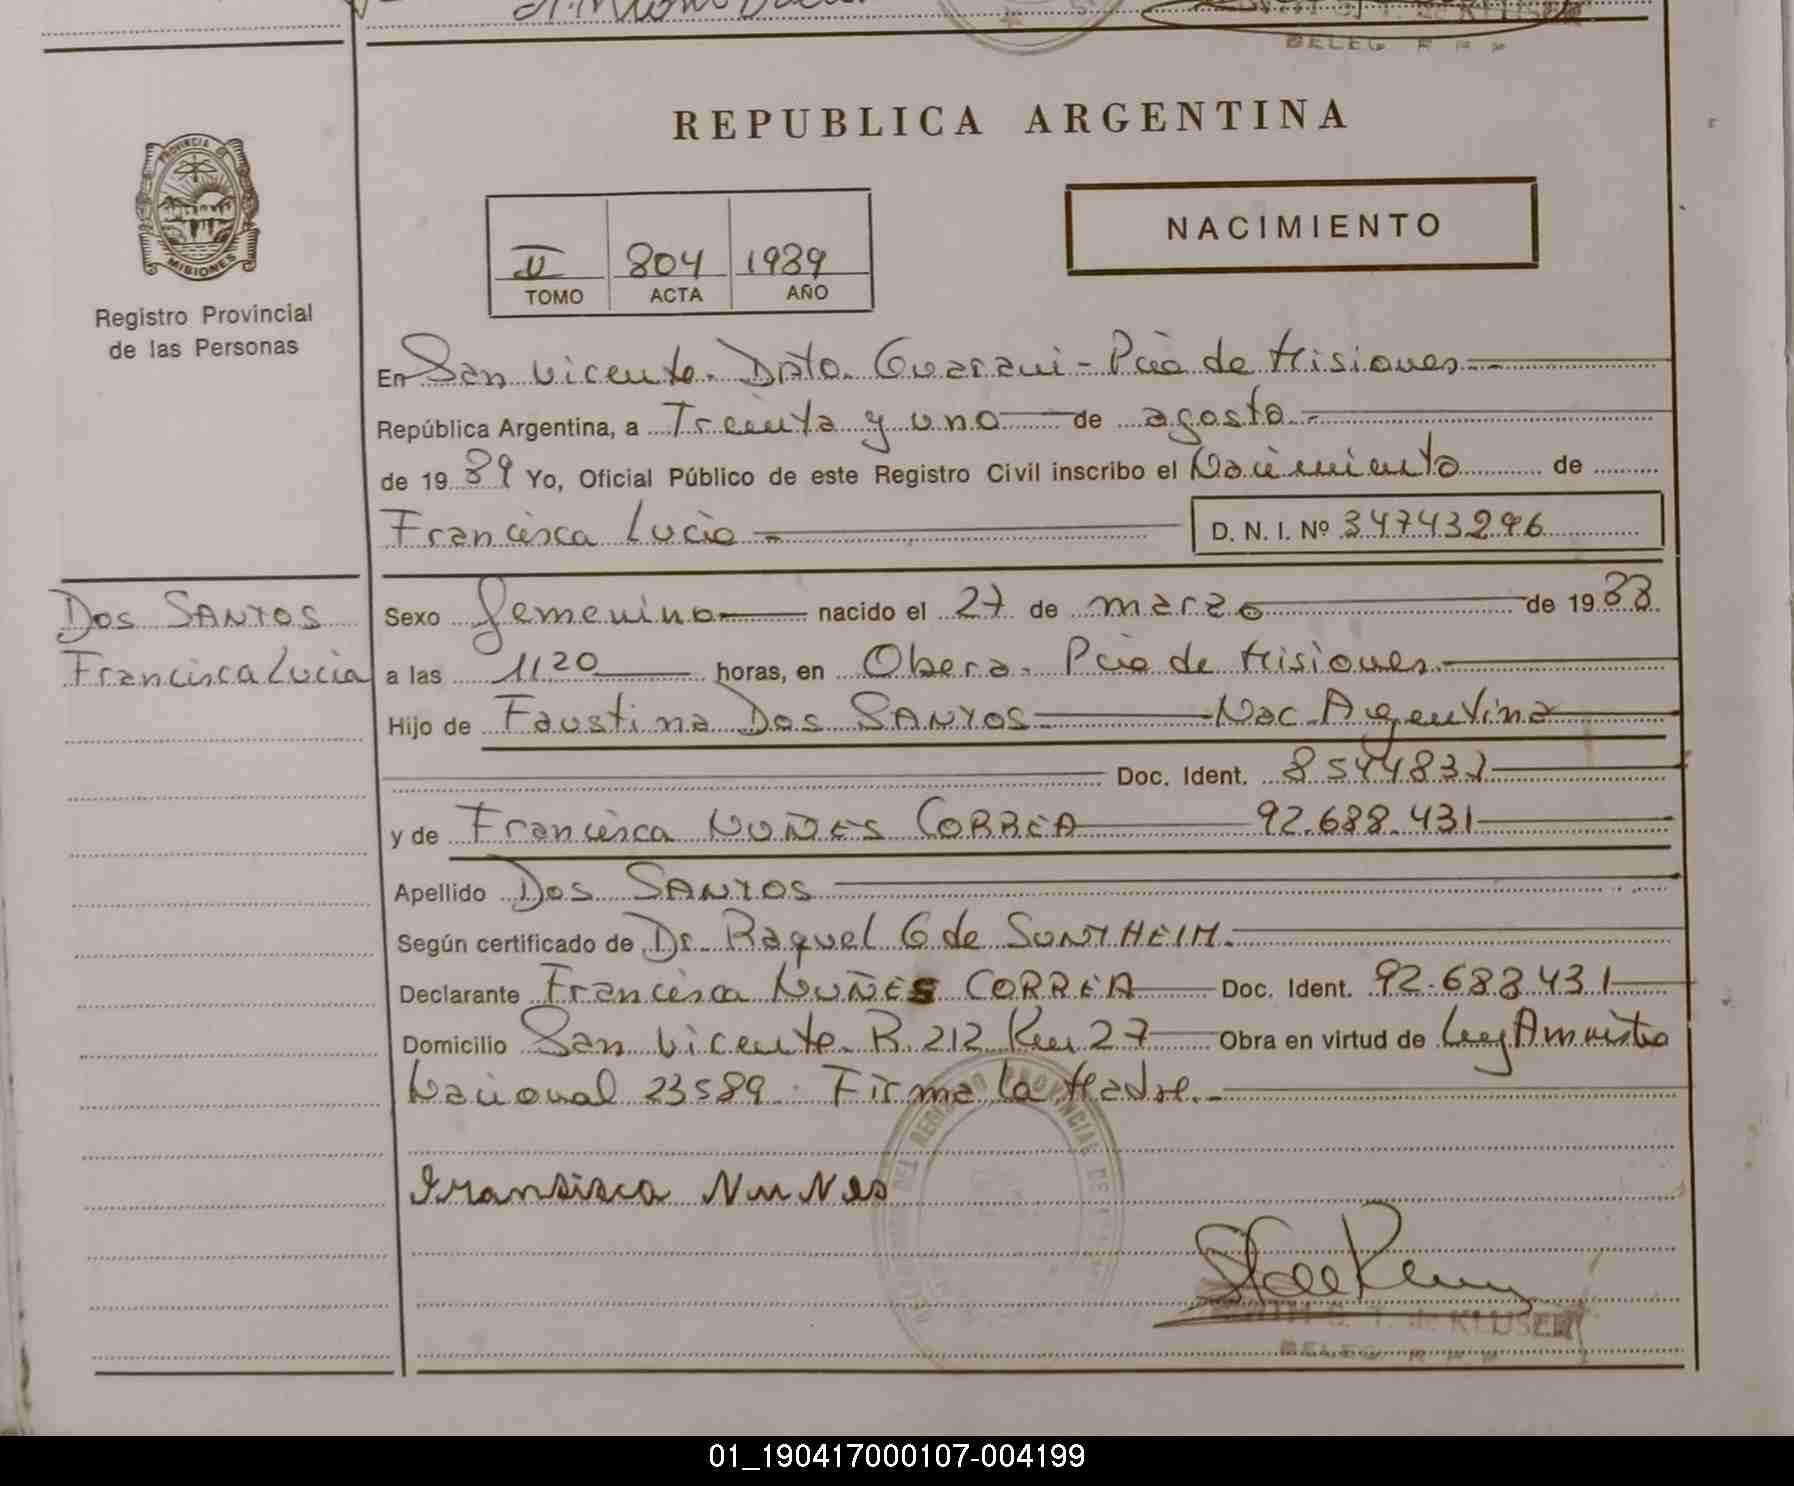 REPUBLICA ARGENTINA
PROVINCIA DE
MISIONES
Registro Provincial
de las Personas
II 804 1989
TOMO ACTA AÑO
NACIMIENTO
En San Vicente. Dpto. Guarani - Pcia de Misiones
República Argentina, a Treinta y uno de agosto
de 1989 Yo, Oficial Público de este Registro Civil inscribo el Nacimiento de
Francisca Lucia D. N. I. Nº 34743296
Dos SANTOS
Francisca Lucia
Sexo Femenino nacido el 27 de marzo de 1988
a las 1120 horas, en Obera. Pcia de Misiones
Hijo de Faustino Dos SANTOS Nac. Argentina
Doc. Ident. 8544831
y de Francisca NUÑES CORREA 92.688.431
Apellido Dos SANTOS
Según certificado de Dr. Raquel G de SONTHEIM.
Declarante Francisca NUÑES CORREA Doc. Ident. 92.688.431
Domicilio San Vicente R. 212 Km 27 Obra en virtud de Ley Amnistia
Nacional 23589. Firma la Madre.
Fransisca NuNes
DEL REGISTRO PROVINCIAL DE
G. T. de KLUSER
01_190417000107-004199